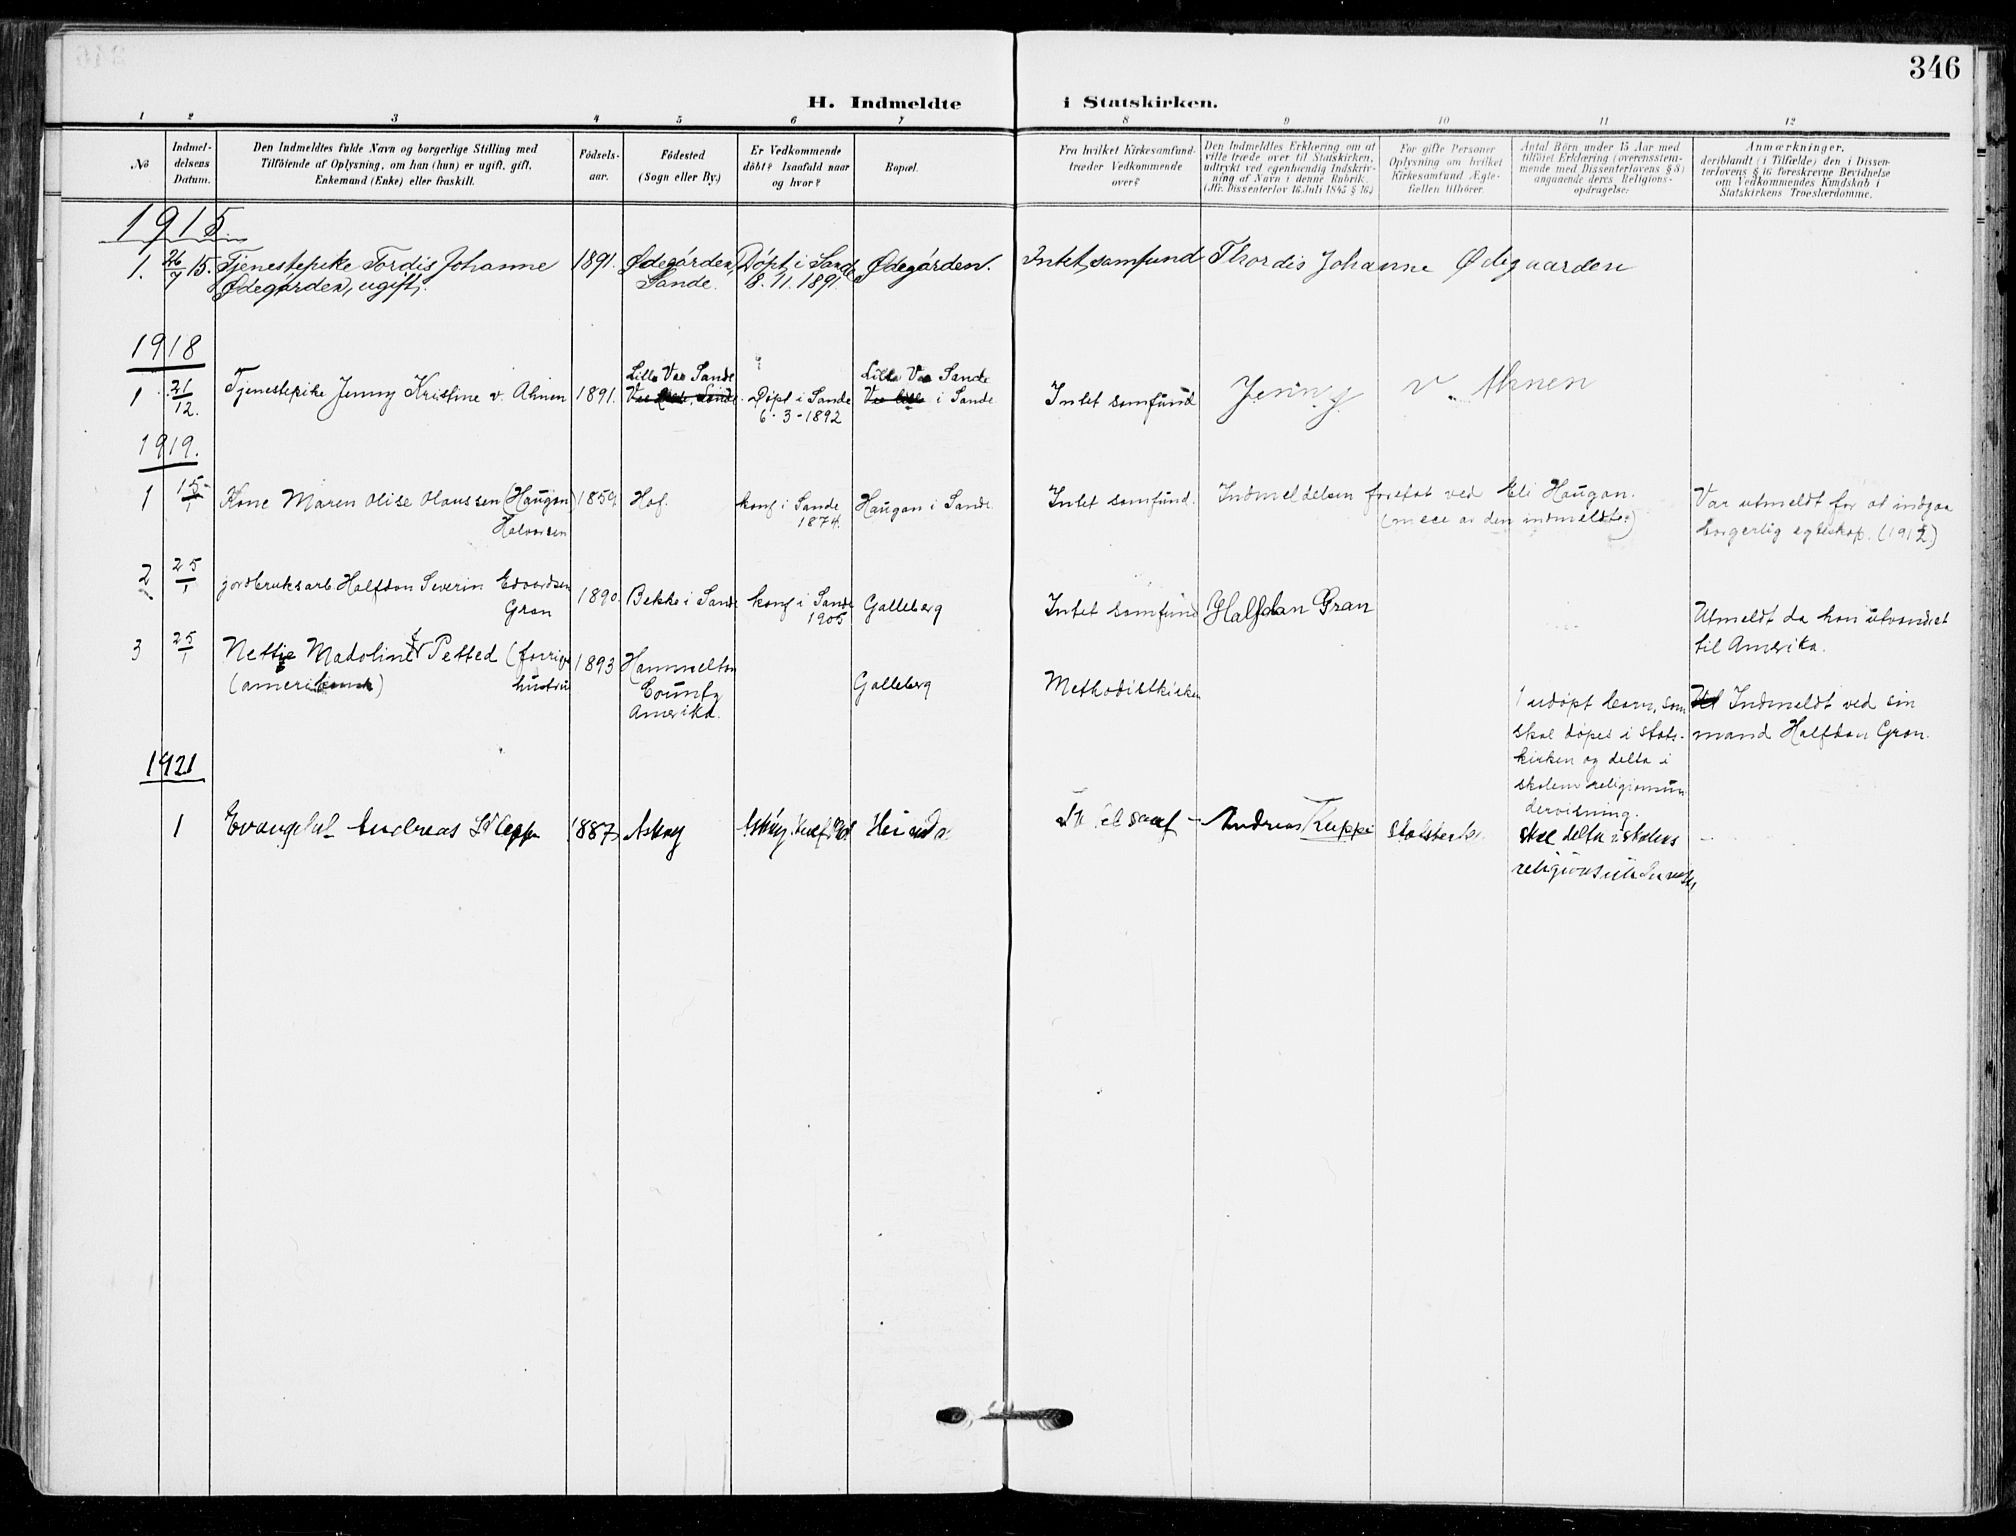 346
H. Indmeldte i Statskirken.
1 2 3 4 5 6 7 8 9 10 11 12
No
Indmel-
delsens
Datum.
Den Indmeldtes fulde Navn og borgerlige Stilling med
Tilföiende af Oplysning, om han (hun) er ugift, gift,
Enkemand (Enke) eller fraskilt.
Födsels-
aar.
Födested
(Sogn eller By.)
Er Vedkommende
döbt? Isaafald naar
og hvor?
Bopæl.
Fra hvilket Kirkesamfund
træder Vedkommende
over?
Den Indmeldtes Erklæring om at
ville træde over til Statskirken,
udtrykt ved egenhændig Indskriv-
ning af Navn i denne Rubrik.
(Jfr. Dissenterlov 16 Juli 1845 § 16.)
For gifte Personer
Oplysning om hvilket
Kirkesamfund Ægte-
fællen tilhörer.
Antal Börn under 15 Aar med
tilföiet Erklæring (overensstem-
mende med Dissenterlovens § 8)
angaaende deres Religions-
opdragelse:
Anmærkninger,
deriblandt (i Tilfælde) den i Dissen-
terlovens § 16 foreskrevne Bevidnelse
om Vedkommendes Kundskab i
Statskirkens Troeslærdomme.
1915.
1. 26/7 15. Tjenestepike Tordis Johanne 1891. Ødegården, Døpt i Sande Ødegården. Intet samfund Thordis Johanne Ødegaarden
Ødegården, ugift. Sande. 8. 11. 1891.
1918
Lille Vee Sande Lille Vee Sande
1 21/12. Tjenestepike Jenny Kristine v. Ahnen 1891. Døpt i Sande i Sande Intet samfund Jenny v. Ahnen
6-3-1892
1919.
1 15/1 Kone Maren Olise Olaussen (Haugan) 1859 Hof. konf i Sande Haugan i Sande. Intet samfund. Indmeldelsen foretat ved Eli Haugan. Var utmeldt for at indgaa
Halvorsen 1874. (niece av den indmeldte.) borgerlig egteskap. (1912)
2 25/1 jordbruksarb Halfdan Severin Edvardsen 1890. Bekke i Sande konf i Sande Galleberg Intet samfund Halfdan Gran Utmeldt da han utvandret
Gran 1905 til Amerika.
3 25/1 Nettie Madoline Petted (forrige 1893 Hammelton Galleberg Methodistkirken 1 udøpt barn, som Indmeldt ved sin
(amerikansk) hustru County skal døpes i stats- mand Halfdan Gran.
Amerika. kirken og delta i
skolens religionsun
dervisning.
1921
1 Evangelist Andreas Kleppe 1887 Askøy Askøy Andreas Kleppe skal delta i skolens
religionsundervisn.